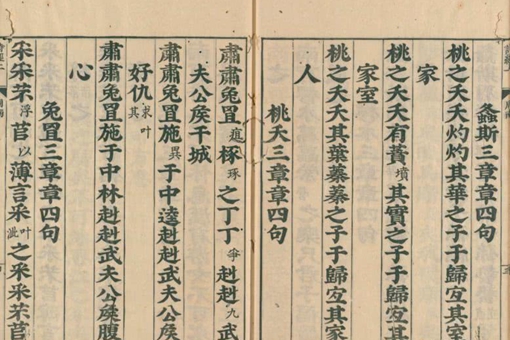 螽斯三章章四句
桃之夭夭灼灼其華之子于歸宐其
家
桃之夭夭有蕡墳其實之子于歸宐其
家室
桃之夭夭其葉蓁蓁之子于歸宐其家
人
桃夭三章章四句
肅肅兔罝椓琢之丁丁爭赳赳九武
夫公侯干城
肅肅兔罝施異于中逵赳赳武夫公侯
好仇求叶其
肅肅兔罝施于中林赳赳武夫公侯腹
心
兔罝三章章四句
采采芣浮苢以薄言采叶泚之采采芣苢